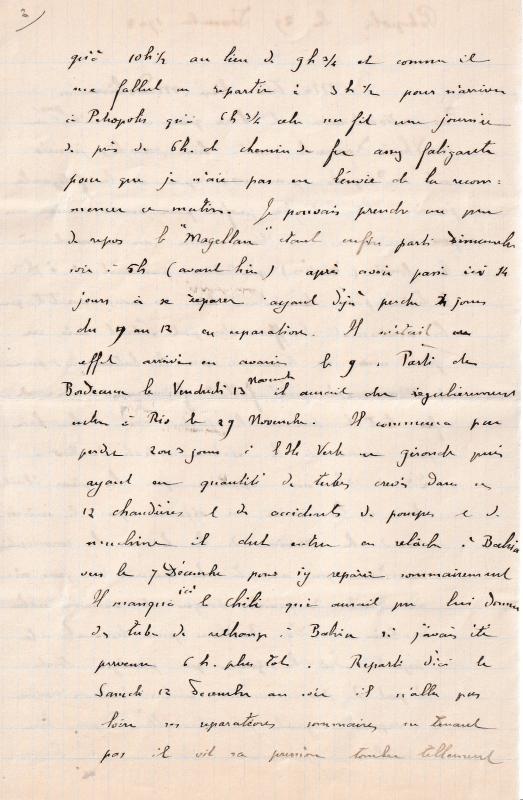 2)
qu'à 10h1/2 au lieu de 9h 3/4 et comme il
me fallut en repartir à 3h 1/2 pour n'arriver
à Pétropolis qu'à 6h 3/4 cela me fit une journée
de près de 6h. de chemin de fer assez fatigante
pour que je n'aie pas eu l'envie de la recom=
mencer ce matin. Je pouvais prendre un peu
de repos le "Magellan" étant enfin parti dimanche
soir à 5h (avant hier) après avoir passé ici 14
jours à se réparer ayant déjà perdu 4 jours
du 9 au 13 en réparation. Il était en
effet arrivé en avaries le 9. Parti de
Bordeaux le Vendredi 13 novembre il aurait du régulièrement
entrer à Rio le 29 Novembre. Il commença par
perdre 2 ou 3 jours à l'Ile Verte en Gironde puis
ayant eu quantité de tubes crevés dans ses
12 chaudières et des accidents de pompes et de
machine il dut entrer en relâche à Bahia
vers le 7 Décembre pour s'y réparer sommairement
Il manqua ici le Chili qui aurait pu lui donner
des tubes de rechange à Bahia si j'avais été
prévenu 6 h. plus tôt. Reparti d'ici le
Samedi 12 décembre au soir il n'alla pas
loin ses réparations sommaires ne tenant
pas il vit sa pression tomber tellement